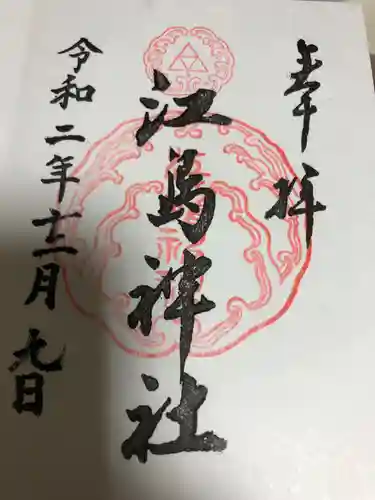 奉拝
江島神社
令和二年十二月九日